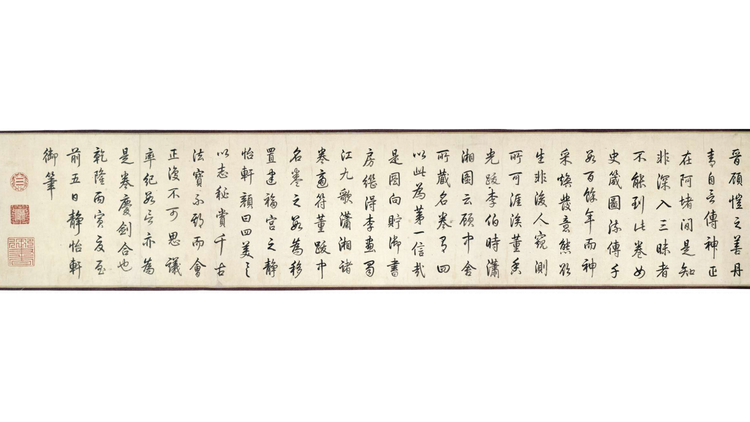 晉顧愷之善丹
青自言傳神正
在阿堵間是知
非深入三昧者
不能到此卷女
史箴圖流傳千
數百餘年而神
采煥發意態欲
生非後人窺測
所可涯涘董香
光跋李伯時瀟
湘圖云顧中舍
所藏名卷有四
以此為第一信哉
是圖向貯御書
房繼得李畫蜀
江九歌瀟湘諸
卷適符董跋中
名卷之數為移
置建福宮之靜
怡軒顏曰四美具
以志秘賞千古
法寶不期而會
正復不可思議
率紀數言亦為
是卷慶劍合也
乾隆丙寅夏至
前五日靜怡軒
御筆